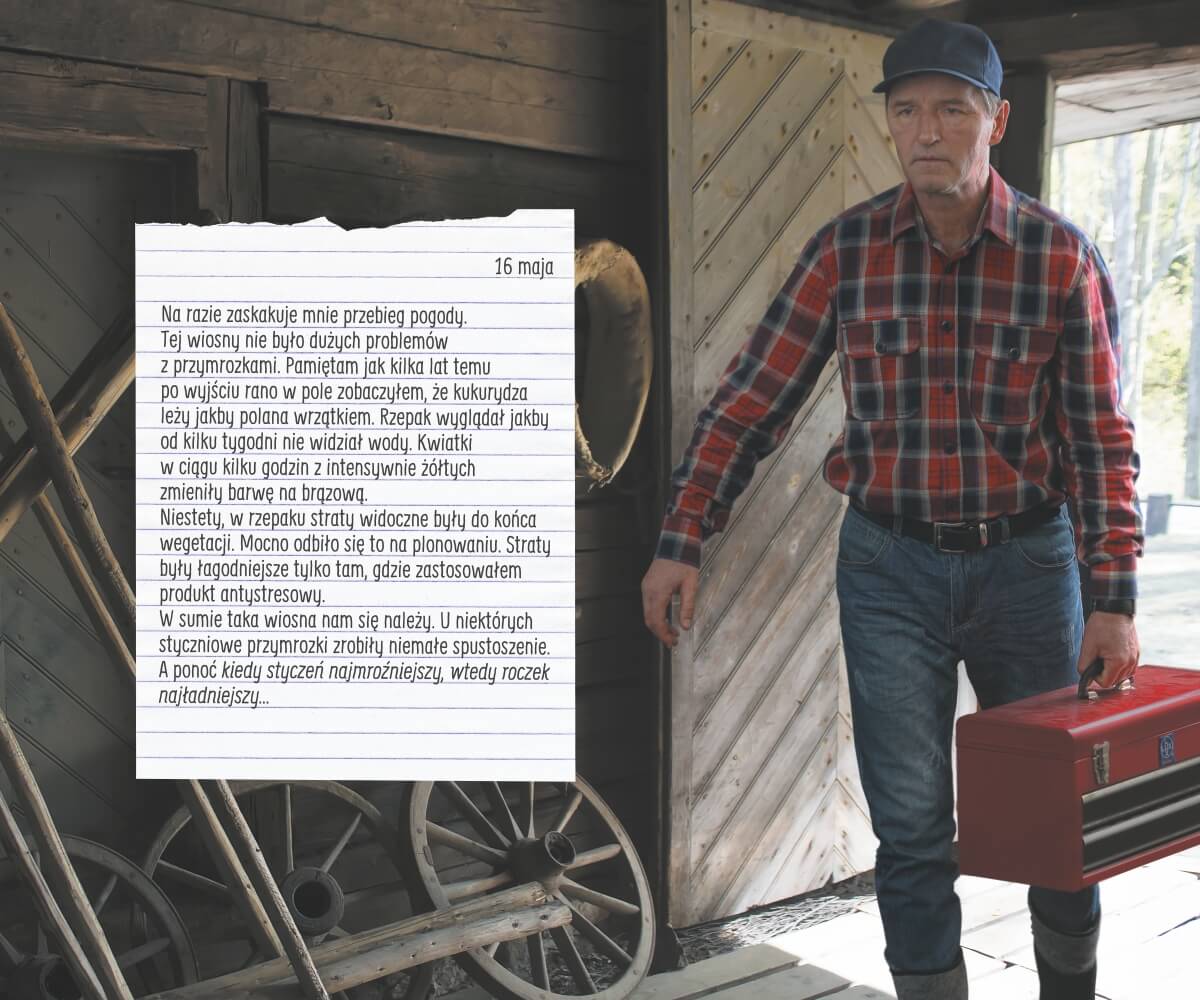 16 maja
Na razie zaskakuje mnie przebieg pogody.
Tej wiosny nie było dużych problemów
z przymrozkami. Pamiętam jak kilka lat temu
po wyjściu rano w pole zobaczyłem, że kukurydza
leży jakby polana wrzątkiem. Rzepak wyglądał jakby
od kilku tygodni nie widział wody. Kwiatki
w ciągu kilku godzin z intensywnie żółtych
zmieniły barwę na brązową.
Niestety, w rzepaku straty widoczne były do końca
wegetacji. Mocno odbiło się to na plonowaniu. Straty
były łagodniejsze tylko tam, gdzie zastosowałem
produkt antystresowy.
W sumie taka wiosna nam się należy. U niektórych
styczniowe przymrozki zrobiły niemałe spustoszenie.
A ponoć kiedy styczeń najmroźniejszy, wtedy roczek
najładniejszy...